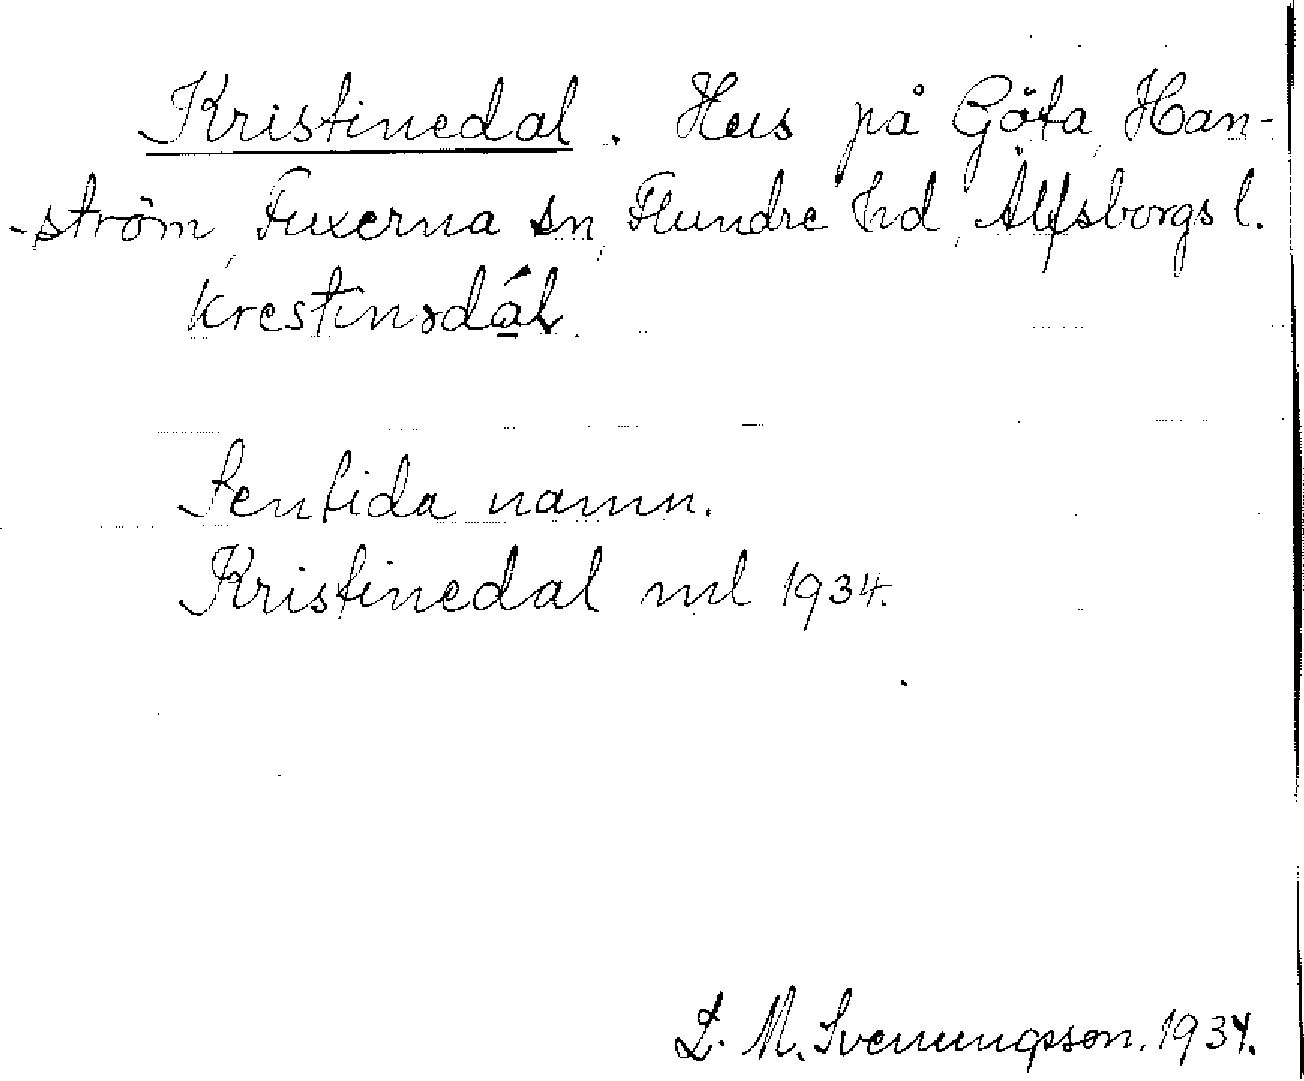 Kristinedal. Hus på Göta, Han-
-ström, Fuxerna sn, Flundre hd, Älfsborgs l.
krestinsdál.
Sentida namn.
Kristinedal ml 1934.
L. M. Svenungsson. 1934.